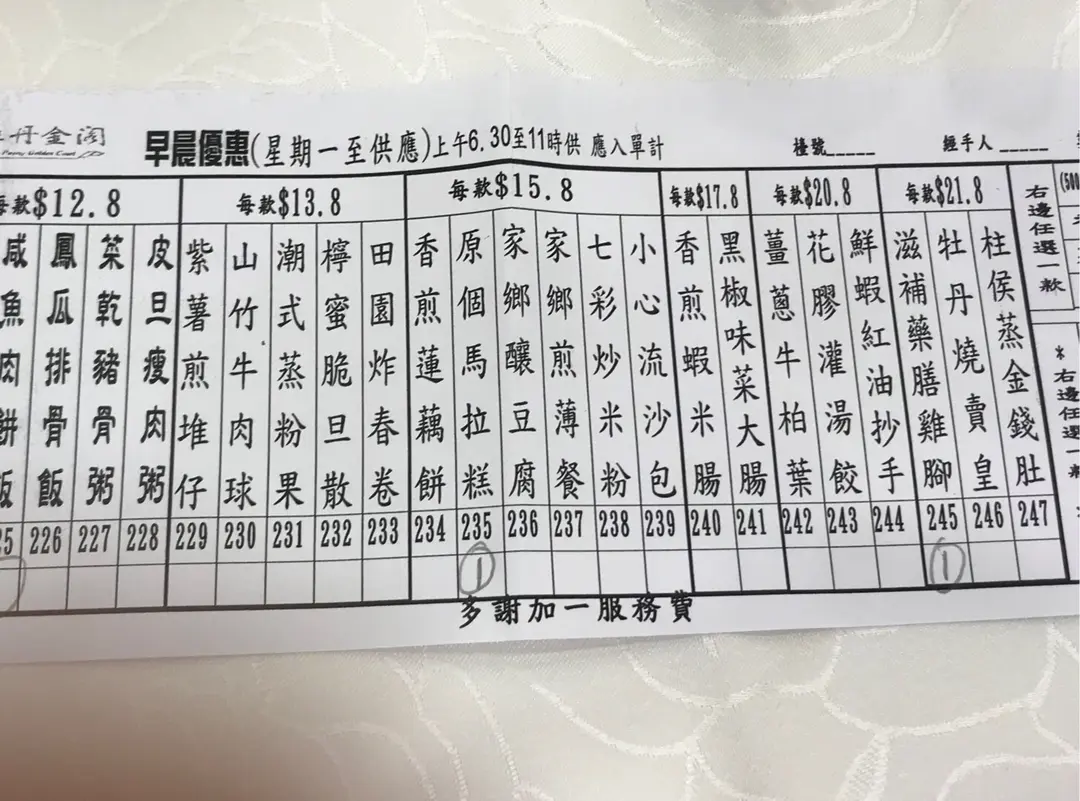 丹金閣
Peony Golden Court
早晨優惠(星期一至供應)上午6.30至11時供 應入單計
檯號_____
經手人 _____
每款$12.8
每款$13.8
每款$15.8
每款$17.8
每款$20.8
每款$21.8
(500
咸魚肉餅飯
鳳瓜排骨飯
菜乾豬骨粥
皮旦瘦肉粥
紫薯煎堆仔
山竹牛肉球
潮式蒸粉果
檸蜜脆旦散
田園炸春卷
香煎蓮藕餅
原個馬拉糕
家鄉釀豆腐
家鄉煎薄餐
七彩炒米粉
小心流沙包
香煎蝦米腸
黑椒味菜大腸
薑蔥牛柏葉
花膠灌湯餃
鮮蝦紅油抄手
滋補藥膳雞腳
牡丹燒賣皇
柱侯蒸金錢肚
右邊任選一款
*右邊任選一款
25 226 227 228 229 230 231 232 233 234 235 236 237 238 239 240 241 242 243 244 245 246 247
1 1
多謝加一服務費